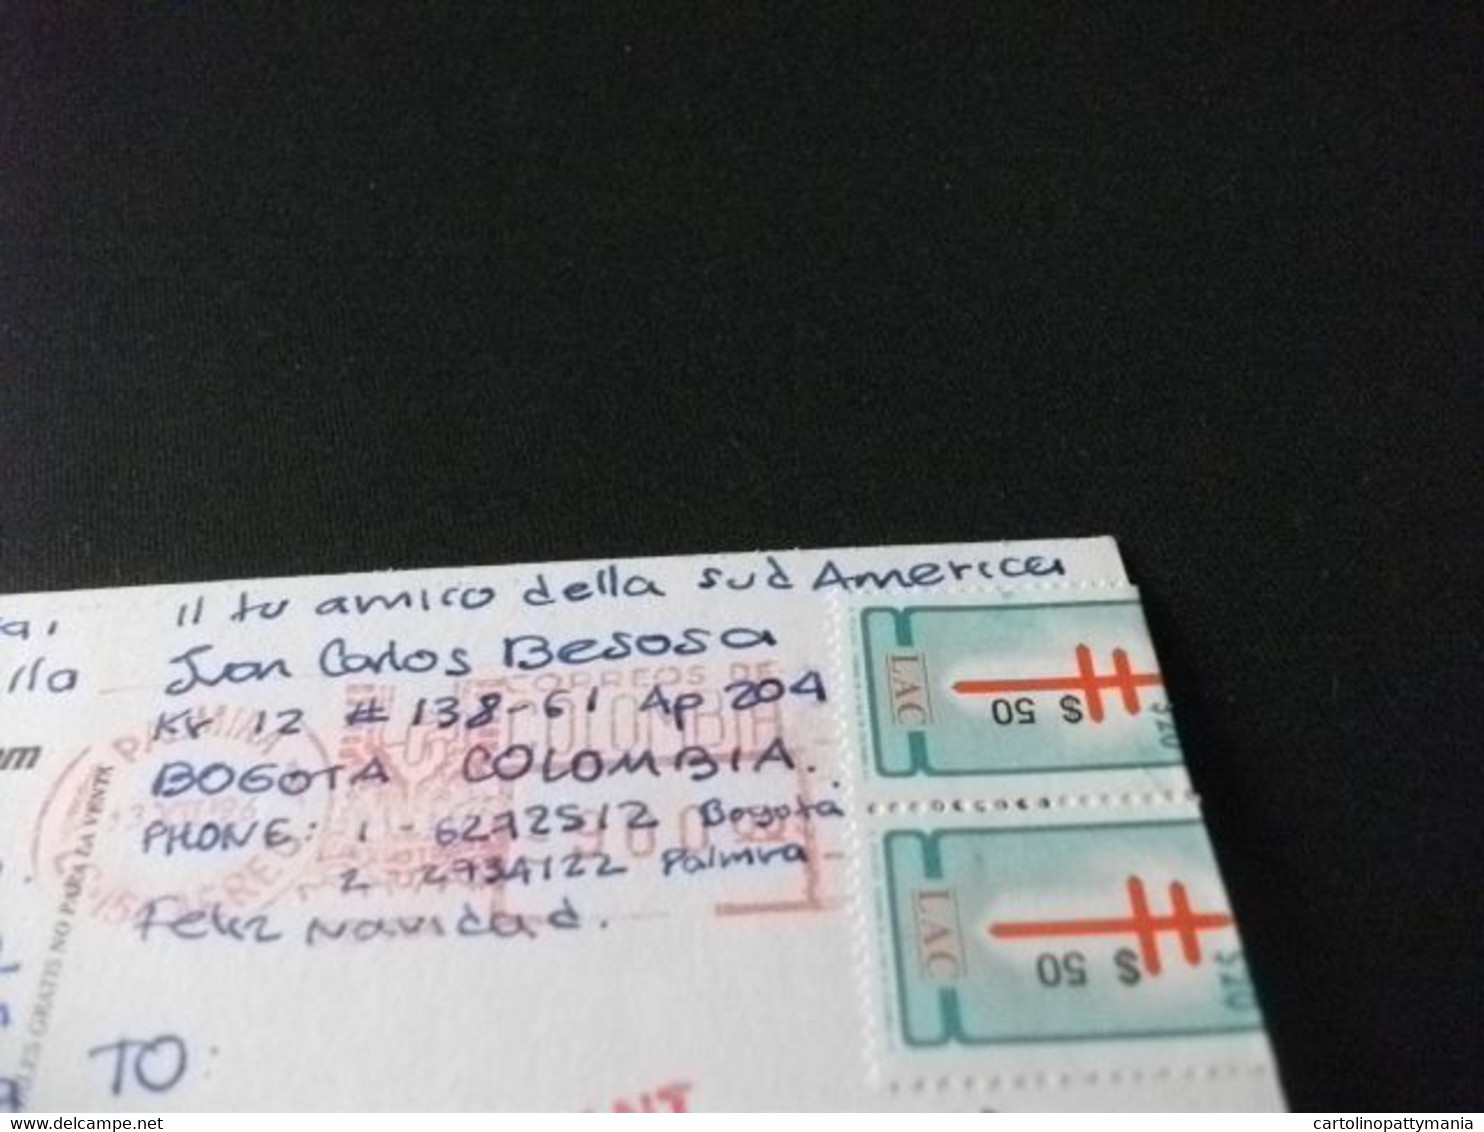 il tu amico della sud America
Juan Carlos Besosa
Kr 12 # 138-61 Ap 204
BOGOTA COLOMBIA.
PHONE: 1 - 6272512 Bogotá
2 2734122 Palmira
Feliz Navidad.
TO
lla
CORREOS DE
COLOMBIA
PALMIRA
GRATIS NO PARA LA VENTA
LAC
$ 50
LAC
$ 50
delcampe.net
cartolinopattymania